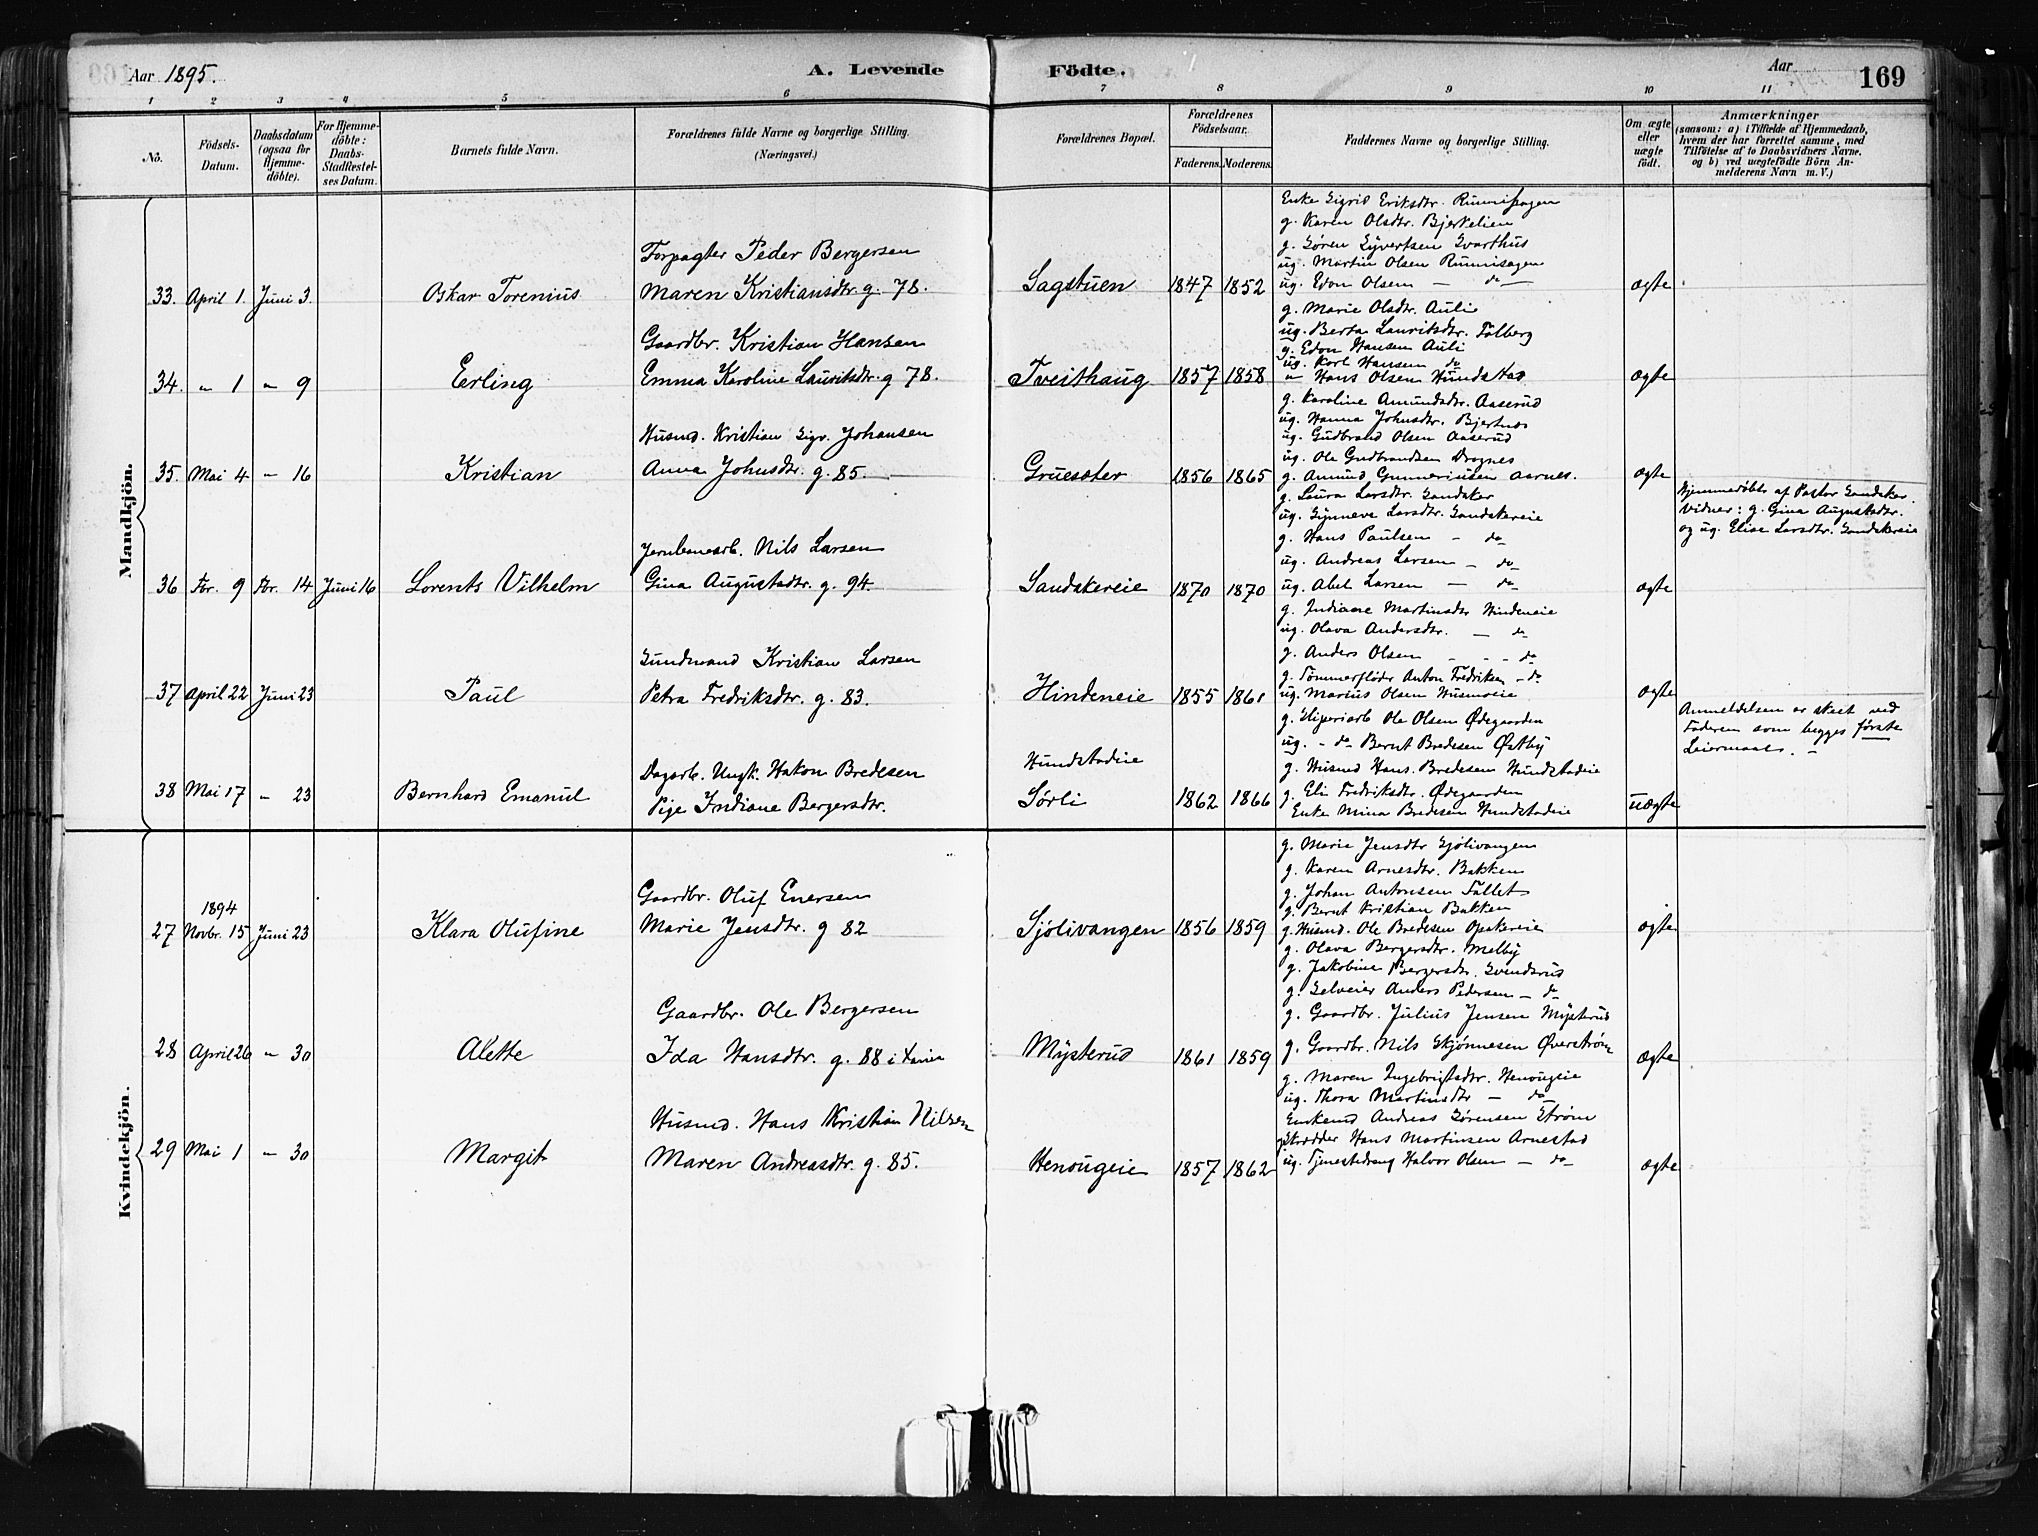 Aar 1895.
A. Levende Födte.
Aar 169
1 2 3 4 5 6 7 8 9 10 11
No.
Födsels-
Datum.
Daabsdatum
(ogsaa for
Hjemme-
döbte).
For Hjemme-
döbte:
Daabs-
Stadfæstel-
ses Datum.
Barnets fulde Navn.
Forældrenes fulde Navne og borgerlige Stilling.
(Næringsvei.)
Forældrenes Bopæl.
Forældrenes
Födselsaar.
Faderens. Moderens.
Faddernes Navne og borgerlige Stilling.
Om ægte
eller
uægte
födt.
Anmærkninger
(saasom: a) i Tilfælde af Hjemmedaab,
hvem der har forrettet samme, med
Tilföielse af to Daabsvidners Navne,
og b) ved uægtefödte Börn An-
melderens Navn m. V.)
Mandkjön.
33. April 1. Juni 3. Oskar Torenius
Forpagter Peder Bergersen
Maren Kristiansdtr. g. 78.
Sagstuen 1847 1852
Enke Sigrid Eriksdtr.
g. Karen Olsdtr. Bjerkelien
g. Søren Syvertsen Svarthus
ug. Martin Olsen
ug. Edon Olsen — do —
ægte
34. " 1 " 9 Erling
Gaardbr. Kristian Hansen
Emma Karoline Lauritsdtr. g 78.
Tveithaug 1857 1858
g. Marie Olsdtr. Aulie
ug. Berta Lauritsdtr. Fålberg
g. Edon Hansen Auli
ug. Karl Hansen do
" Hans Olsen Hundstad
ægte
35. Mai 4 " 16 Kristian
Husmd. Kristian Sigv. Johansen
Anna Johnsdtr. g. 85. —
Gruesæter 1856 1865
g. Karoline Amundsdtr. Aaserud
ug. Hanna Johnsdtr. Bjertnæs
ug. Gudbrand Olsen Aaserud
ug. Ole Gudbrandsen Dragnes
g. Amund Gunneriusen Aarnes.
ægte
36 Fbr. 9 Fbr. 14 Juni 16 Lorents Vilhelm
Jernbanearb. Nils Larsen
Gina Augustadtr. g. 94.
Sandakereie 1870 1870
g. Laura Larsdtr. Sandaker
ug. Synneve Larsdtr. Sandakereie
g. Hans Paulsen — do
ug. Andreas Larsen — do
ug. Abel Larsen — do
ægte
Hjemmedøbt af Pastor Sandaker.
Vidner: g. Gina Augustadtr.
og ug. Elise Larsdtr. Sandakereie
37 April 22 Juni 23 Paul
Kristian Larsen
Petra Fredriksdtr. g. 83.
Hindeneie 1855 1861
g. Indiane Martinsdtr Hindeneie
ug. Olava Andersdtr. — do
g. Anders Olsen — — do
g. Tømmerfløder Anton Fredriksen — do
ug. Marius Olsen Husmoeie
ægte
38 Mai 17 " 23 Bernhard Emanuel
Dagarb. Ungk. Hakon Bredesen
Pige Indiane Bergersdtr.
Hundstadeie
Sørli 1862 1866
g. Sliperiarb Ole Olsen Ødegaarden
ug. " do Bernt Bredesen Østby
g. Husmd Hans Bredesen Hundstadeie
g. Eli Fredriksdtr. Ødegaarden
Enke Mina Bredesen Hundstadeie
uægte
Anmeldelsen er skeet ved
Faderen som begges første
Leiermaal. —
Kvindekjön.
27 1894 Novbr. 15 Juni 23 Klara Olufine
Gaardbr. Oluf Enersen
Marie Jensdtr. g 82
Sjølivangen 1856 1859
g. Marie Jensdtr Sjølivangen
g. Karen Arnesdtr. Bakken
g. Johan Antonsen Fallet
g. Bernt Kristian Bakken
g. Husmd. Ole Bredesen Opakereie
ægte
28 April 26 " 30 Alette
Gaardbr. Ole Bergersen
Ida Hansdtr. g. 88 i
Mysterud 1861 1859
g. Olava Bergersdtr. Melby
g. Jakobine Bergersdtr. Svendsrud
g. Selveier Anders Pedersen — do
g. Gaardbr. Julius Jensen Mysterud
g. Gaardbr. Nils Skjønnesen Øverstrøm
ægte
29 Mai 1 " 30 Margit
Husmd. Hans Kristian Nilsen
Maren Andreasdtr. g. 85.
Henougeie 1857 1862
g. Maren Ingebrigtsdtr. Henougeie
ug. Thora Martinsdtr — do
Enkemd Andreas Sørensen Strøm
g Skrædder Hans Martinsen Arnestad
ug. Tjenestedreng Halvor Olsen — do
ægte